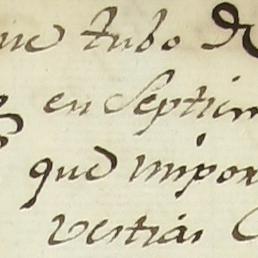 que tubo
en Septiem
que impor
vestias